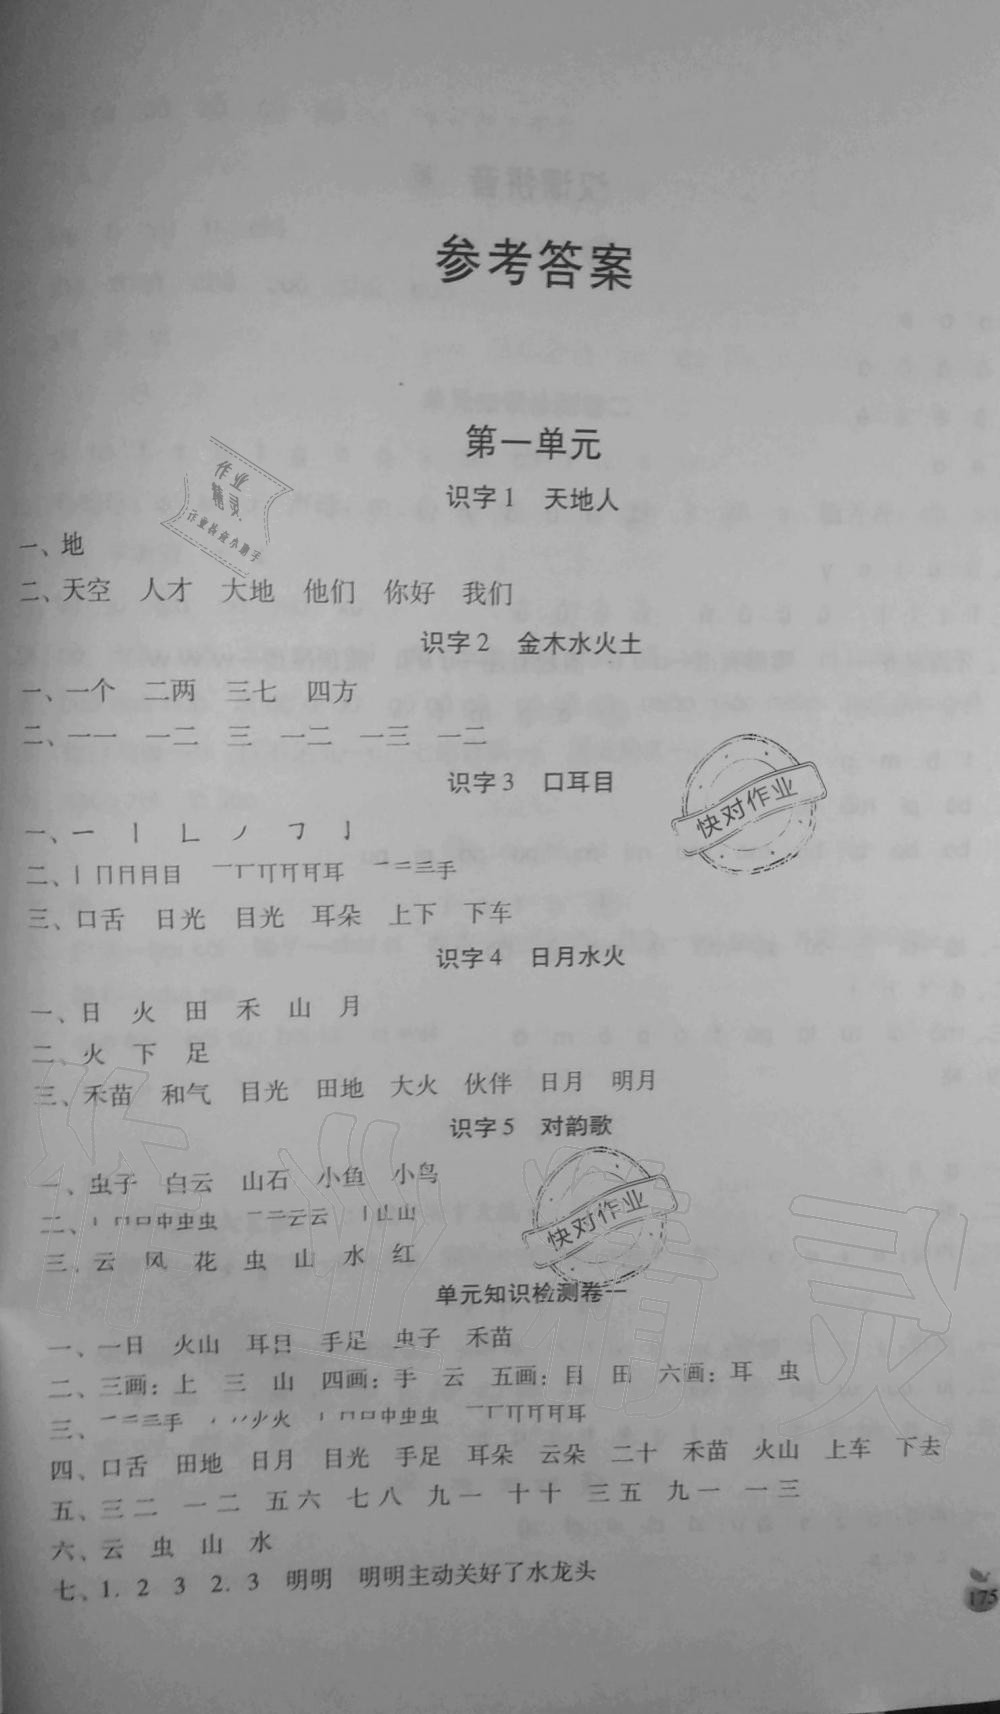 参考答案
第一单元
识字1 天地人
一、地
二、天空 人才 大地 他们 你好 我们
识字2 金木水火土
一、一个 二两 三七 四方
二、一一 一二 三 一二 一三 一二
识字3 口耳目
一、一 丨 𠃊 丿 ㇕ 亅
二、丨 冂 月 月 目 一 丅 丌 耳 手
三、口舌 日光 目光 耳朵 上下 下车
识字4 日月水火
一、日 火 田 禾 山 月
二、火 下 足
三、禾苗 和气 目光 田地 大火 伙伴 日月 明月
识字5 对韵歌
一、虫子 白云 山石 小鱼 小鸟
二、丨 口 中 虫 虫 一 二 云 云 丨 山 山
三、云 风 花 虫 山 水 红
单元知识检测卷一
一、一日 火山 耳目 手足 虫子 禾苗
二、三画：上 三 山 四画：手 云 五画：目 田 六画：耳 虫
三、一 二 三 手 丶 火 火 丨 口 中 虫 虫 一 丅 丌 耳
四、口舌 田地 日月 目光 手足 耳朵 云朵 二十 禾苗 火山 上车 下去
五、三 二 一 二 五 六 七 八 九 一 十 十 三 五 九 一 一 三
六、云 虫 山 水
七、1. 2 3 2. 3 明明 明明主动关好了水龙头
175
作业
精灵
快对作业
快对作业
作业精灵